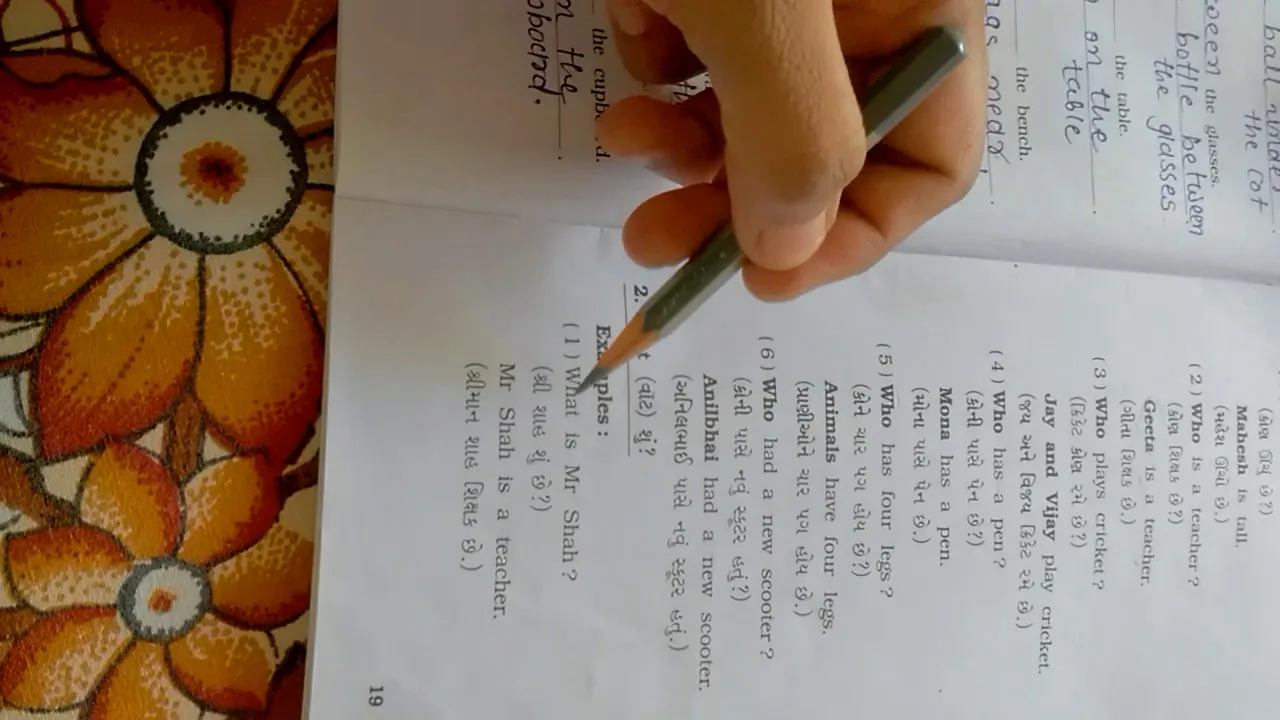 ball
the cot
the glasses.
bottle between
the glasses
the table.
on the
table
the bench.
the
the cupb d.
on the
(કોણ ઊંચું છે?)
Mahesh is tall.
(મહેશ ઊંચો છે.)
(2) Who is a teacher?
(કોણ શિક્ષક છે?)
Geeta is a teacher.
(ગીતા શિક્ષક છે.)
(3) Who plays cricket?
(ક્રિકેટ કોણ રમે છે?)
Jay and Vijay play cricket.
(જય અને વિજય ક્રિકેટ રમે છે.)
(4) Who has a pen?
(કોની પાસે પેન છે?)
Mona has a pen.
(મોના પાસે પેન છે.)
(5) Who has four legs?
(કોને ચાર પગ હોય છે?)
Animals have four legs.
(પ્રાણીઓને ચાર પગ હોય છે.)
(6) Who had a new scooter?
(કોની પાસે નવું સ્કૂટર હતું?)
Anilbhai had a new scooter.
(અનિલભાઈ પાસે નવું સ્કૂટર હતું.)
2. t (વૉટ) શું?
Ex ples :
(1) What is Mr Shah?
(શ્રી શાહ શું છે?)
Mr Shah is a teacher.
(શ્રીમાન શાહ શિક્ષક છે.)
19